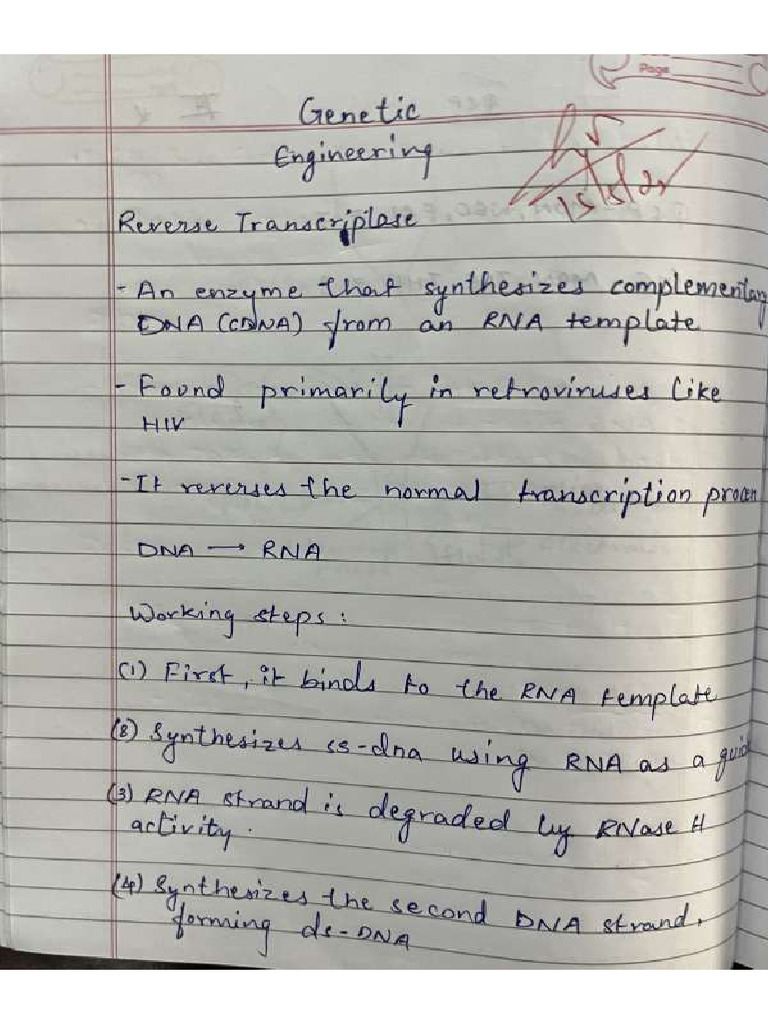 Page
Genetic
Engineering
15/5/25
Reverse Transcriptase
- An enzyme that synthesizes complementary
DNA (cDNA) from an RNA template
- Found primarily in retroviruses like
HIV
- It reverses the normal transcription process
DNA → RNA
Working steps :
(1) First, it binds to the RNA template
(2) Synthesizes ss-dna using RNA as a guid
(3) RNA strand is degraded by RNase H
activity.
(4) Synthesizes the second DNA strand,
forming ds-DNA